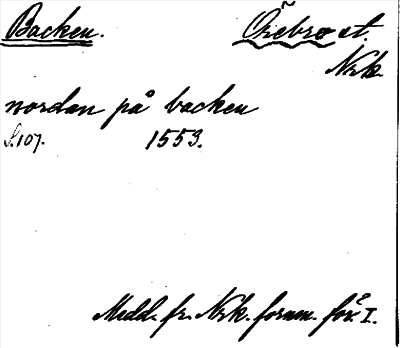 Backen. Örebro st.
Nrk.
nordan på backen
S. 107. 1553.
Medd. fr. Nrk. fornm. för. I.